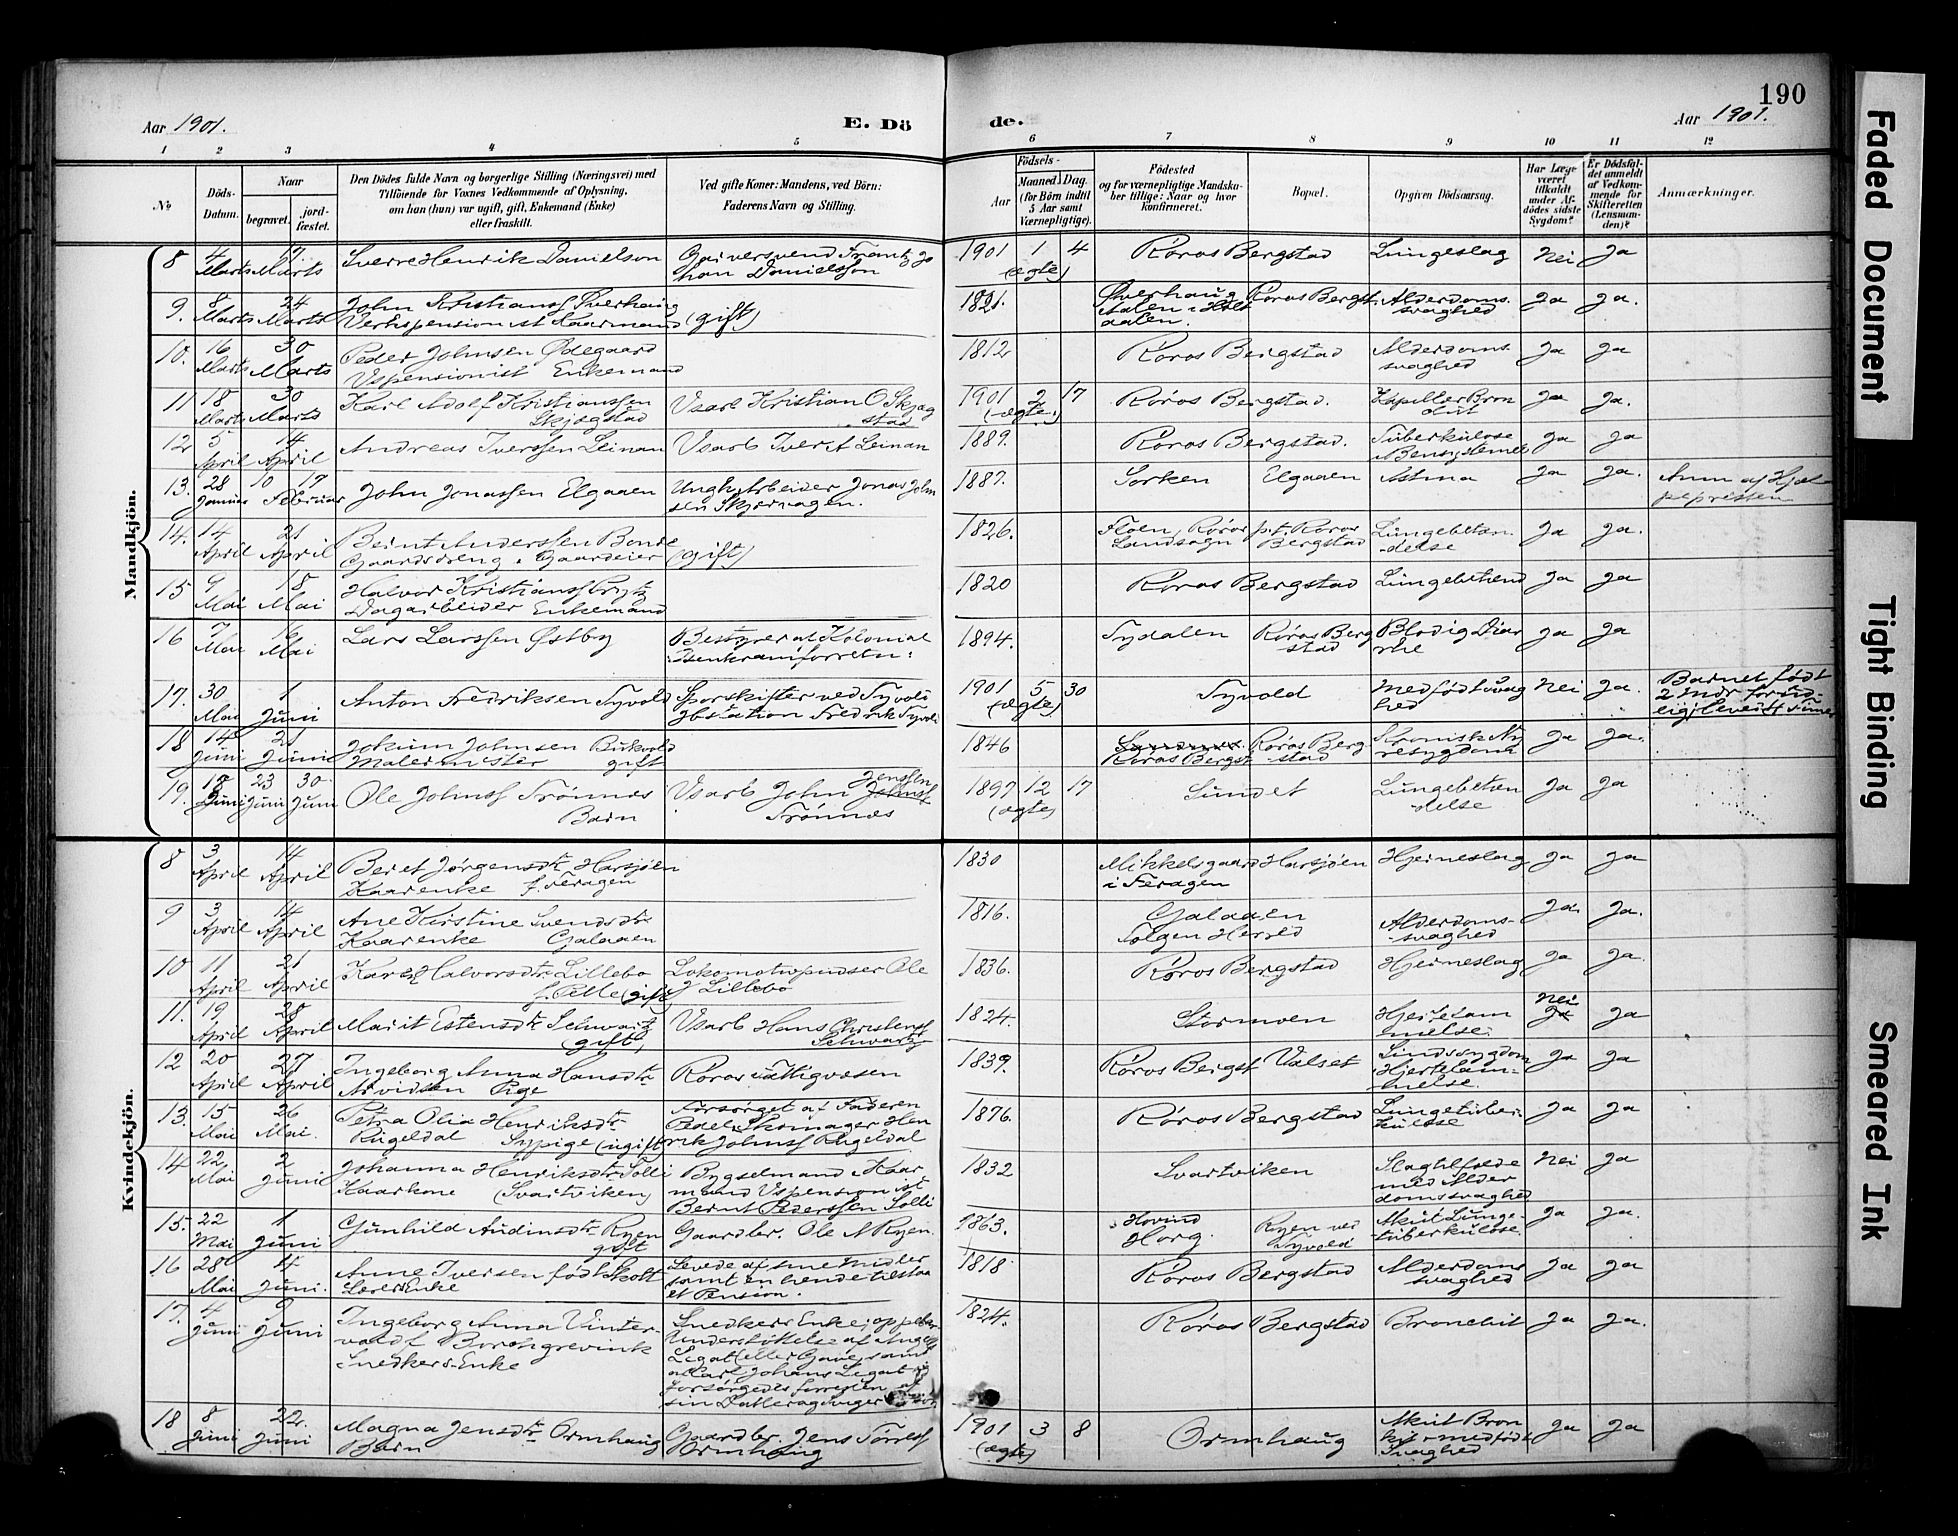 190
Aar 1901. E. Dö
de. Aar 1901.
1 2 3 4 5 6 7 8 9 10 11 12
№
Döds-Datum.
Naar
begravet. jord-fæstet.
Den Dödes fulde Navn og borgerlige Stilling (Næringsvei) med
Tilföiende for Voxnes Vedkommende af Oplysning,
om han (hun) var ugift, gift, Enkemand (Enke)
eller fraskilt.
Ved gifte Koner: Mandens, ved Börn:
Faderens Navn og Stilling.
Födsels-
Aar Maaned Dag.
(for Börn indtil
5 Aar samt
Værnepligtige).
Födested
og for værnepligtige Mandska-
ber tillige: Naar og hvor
konfirmeret.
Bopæl.
Opgiven Dödsaarsag.
Har Læge
været
tilkaldt
under Af-
dödes sidste
Sygdom?
Er Dödsfal-
det anmeldt
af Vedkom-
mende for
Skifteretten
(Lensman-
den)?
Anmærkninger.
Mandkjön.
8 4 Marts 17 Marts Sverre Henrik Danielson Garversvend Frantz Jo
han Danielsson 1901 1 4 (ægte) Røros Bergstad Lungeslag Nei Ja
9. 8 Marts 24 Marts John Kristianss Øverhaug
Verkspensionist Kaarmand (gift) 1821. Øverhaug
Aalen i Holt
aalen. Røros Bergst. Alderdoms
svaghed Ja Ja.
10. 16 Marts 30 Marts Peder Johnsen Ødegaard
Vspensionist Enkemand 1812 Røros Bergstad Alderdoms
svaghed Ja Ja
11 18 Marts 30 Marts Karl Adolf Kristianssen
Skjøgstad Vsarb Kristian O Skjøg
stad 1901 2 17 (ægte) Røros Bergstad. Kapillær Bron
chit Ja Ja.
12 5 April 14 April Andreas Iverssen Leinan Vsarb Iver Leinan 1889. Røros Bergstad. Tuberkulose
Bensystemet Ja Ja
13. 28 Januar 10 17 Februar John Jonassen Elgaaen Jonas John
sen 1887. Sorken Elgaaen Astma Ja Ja. Anm af Hjæl
pepresten
14. 14 April 21 April Bernt Anderssen Bonde
Gaardsdreng, Gaardeier (gift) 1826. Floen, Røros
Landsogn p.t. Røros
Bergstad Lungebetæn
delse Ja Ja.
15 9 Mai 18 Mai Halvor Kristianss Prytz
Dagarbeider Enkemand 1820 Røros Bergstad Lungebetænd Ja Ja
16 7 Mai 16 Mai Lars Larssen Østby Bestyrer af Kolonial
Isenkramforretn: 1894. Tydalen Røros Berg
stad Blodig Diar
rhe Ja Ja
17. 30 Mai 1 Juni Anton Fredriksen Tyvold Sporskifter ved Tyvold
Jbstation Fredrik Tyvold 1901 5 30 (ægte) Tyvold Medfødt svag
hed Nei Ja. Barnet født
2 Mdr for tid-
lig; levede 4 Timer
18 14 Juni 21 Juni Jokum Johnsen Bukvold
Malermester gift 1846 Røros Bergst Røros Berg-
stad Kronisk Ny
resygdom Ja Ja.
19. 18 Juni 23 Juni 30 Juni Ole Johnss Trønnes
Barn Vsarb John Jenssen
Johnss
Trønnes 1897 12 17 (ægte) Sundet Lungebetæn
delse Ja Ja
Kvindekjön.
8 3 April 14 April Beret Jørgensdtr Harsjøen
Kaarenke f. Feragen 1830 Mikkelsgaard
i Feragen Harsjøen Hjerneslag Ja Ja
9 3 April 14 April Ane Kirstine Svendsdtr
Kaarenke Galaaen 1816. Galaaen
Tolgen Herred Alderdoms-
svaghed Ja. Ja.
10 11 April 21 April Karen Halvorsdtr Lillebo
f. Pelle (gift) Lokomotivpudser Ole
J Lillebo 1836. Røros Bergstad Hjerneslag Ja Ja.
11. 19 April 28 April Marit Estensdtr Schwartz
(gift) Vsarb Hans Christenss
Schwartz 1824. Stormoen Hjertelam
melse. Nei
Ja Ja
12 20 April 27 April Ingeborg Anna Hansdtr
Arvidsen Pige Røros Fattigvæsen 1839. Røros Bergst Valset Sindssygdom
Hjertelam-
melse. Ja Ja
13. 15 Mai 26 Mai. Petra Olia Henriksdtr
Rugeldal Sypige (ugift) Forsørget af Faderen
Skomager Hen
rik Johnss Rugeldal 1876. Røros Bergstad Lungetuber-
kulose Ja Ja
14 22 Mai 2 Juni Johanna Henriksdtr Solli
Kaarkone (Svartviken) Bygselmand Kaar
mand Vspensionist
Bernt Pederssen Solli 1832 Svartviken Slagtilfælde
med Alder
domssvaghed Nei Ja
15. 22 Mai 1 Juni Gunhild Audinsdtr Ryen
gift Gaardbr. Ole N Ryen. 1863. Hovind
Horg. Ryen ved
Tyvold Akut Lunge-
tuberkulose. Ja Ja.
16 28 Mai 4 Juni. Anne Iversen født Skott
Enke Levede af sine Midler
samt en hende tilstaa
et Pension. 1818 Røros Bergstad Alderdoms
svaghed Ja Ja
17. 4 Juni 9 Juni Ingeborg Anna Vinter-
vold f Borchgrevink
Snedkers-Enke Snedkers Enke,
Understøttelse af
Legat (eller Gave) samt
af Carl Johans Legat
forsørgedes forresten af
sin Datter 1824. Røros Bergstad Bronchit Ja Ja.
18 8 Juni 22. Juni Magna Jensdtr Ormhaug
Barn Gaardbr. Jens Tørress
Ormhaug 1901 3 8 (ægte) Ormhaug Akut Bron
kit, medfødt
Svaghed Ja Ja
Faded Document
Tight Binding
Smeared Ink